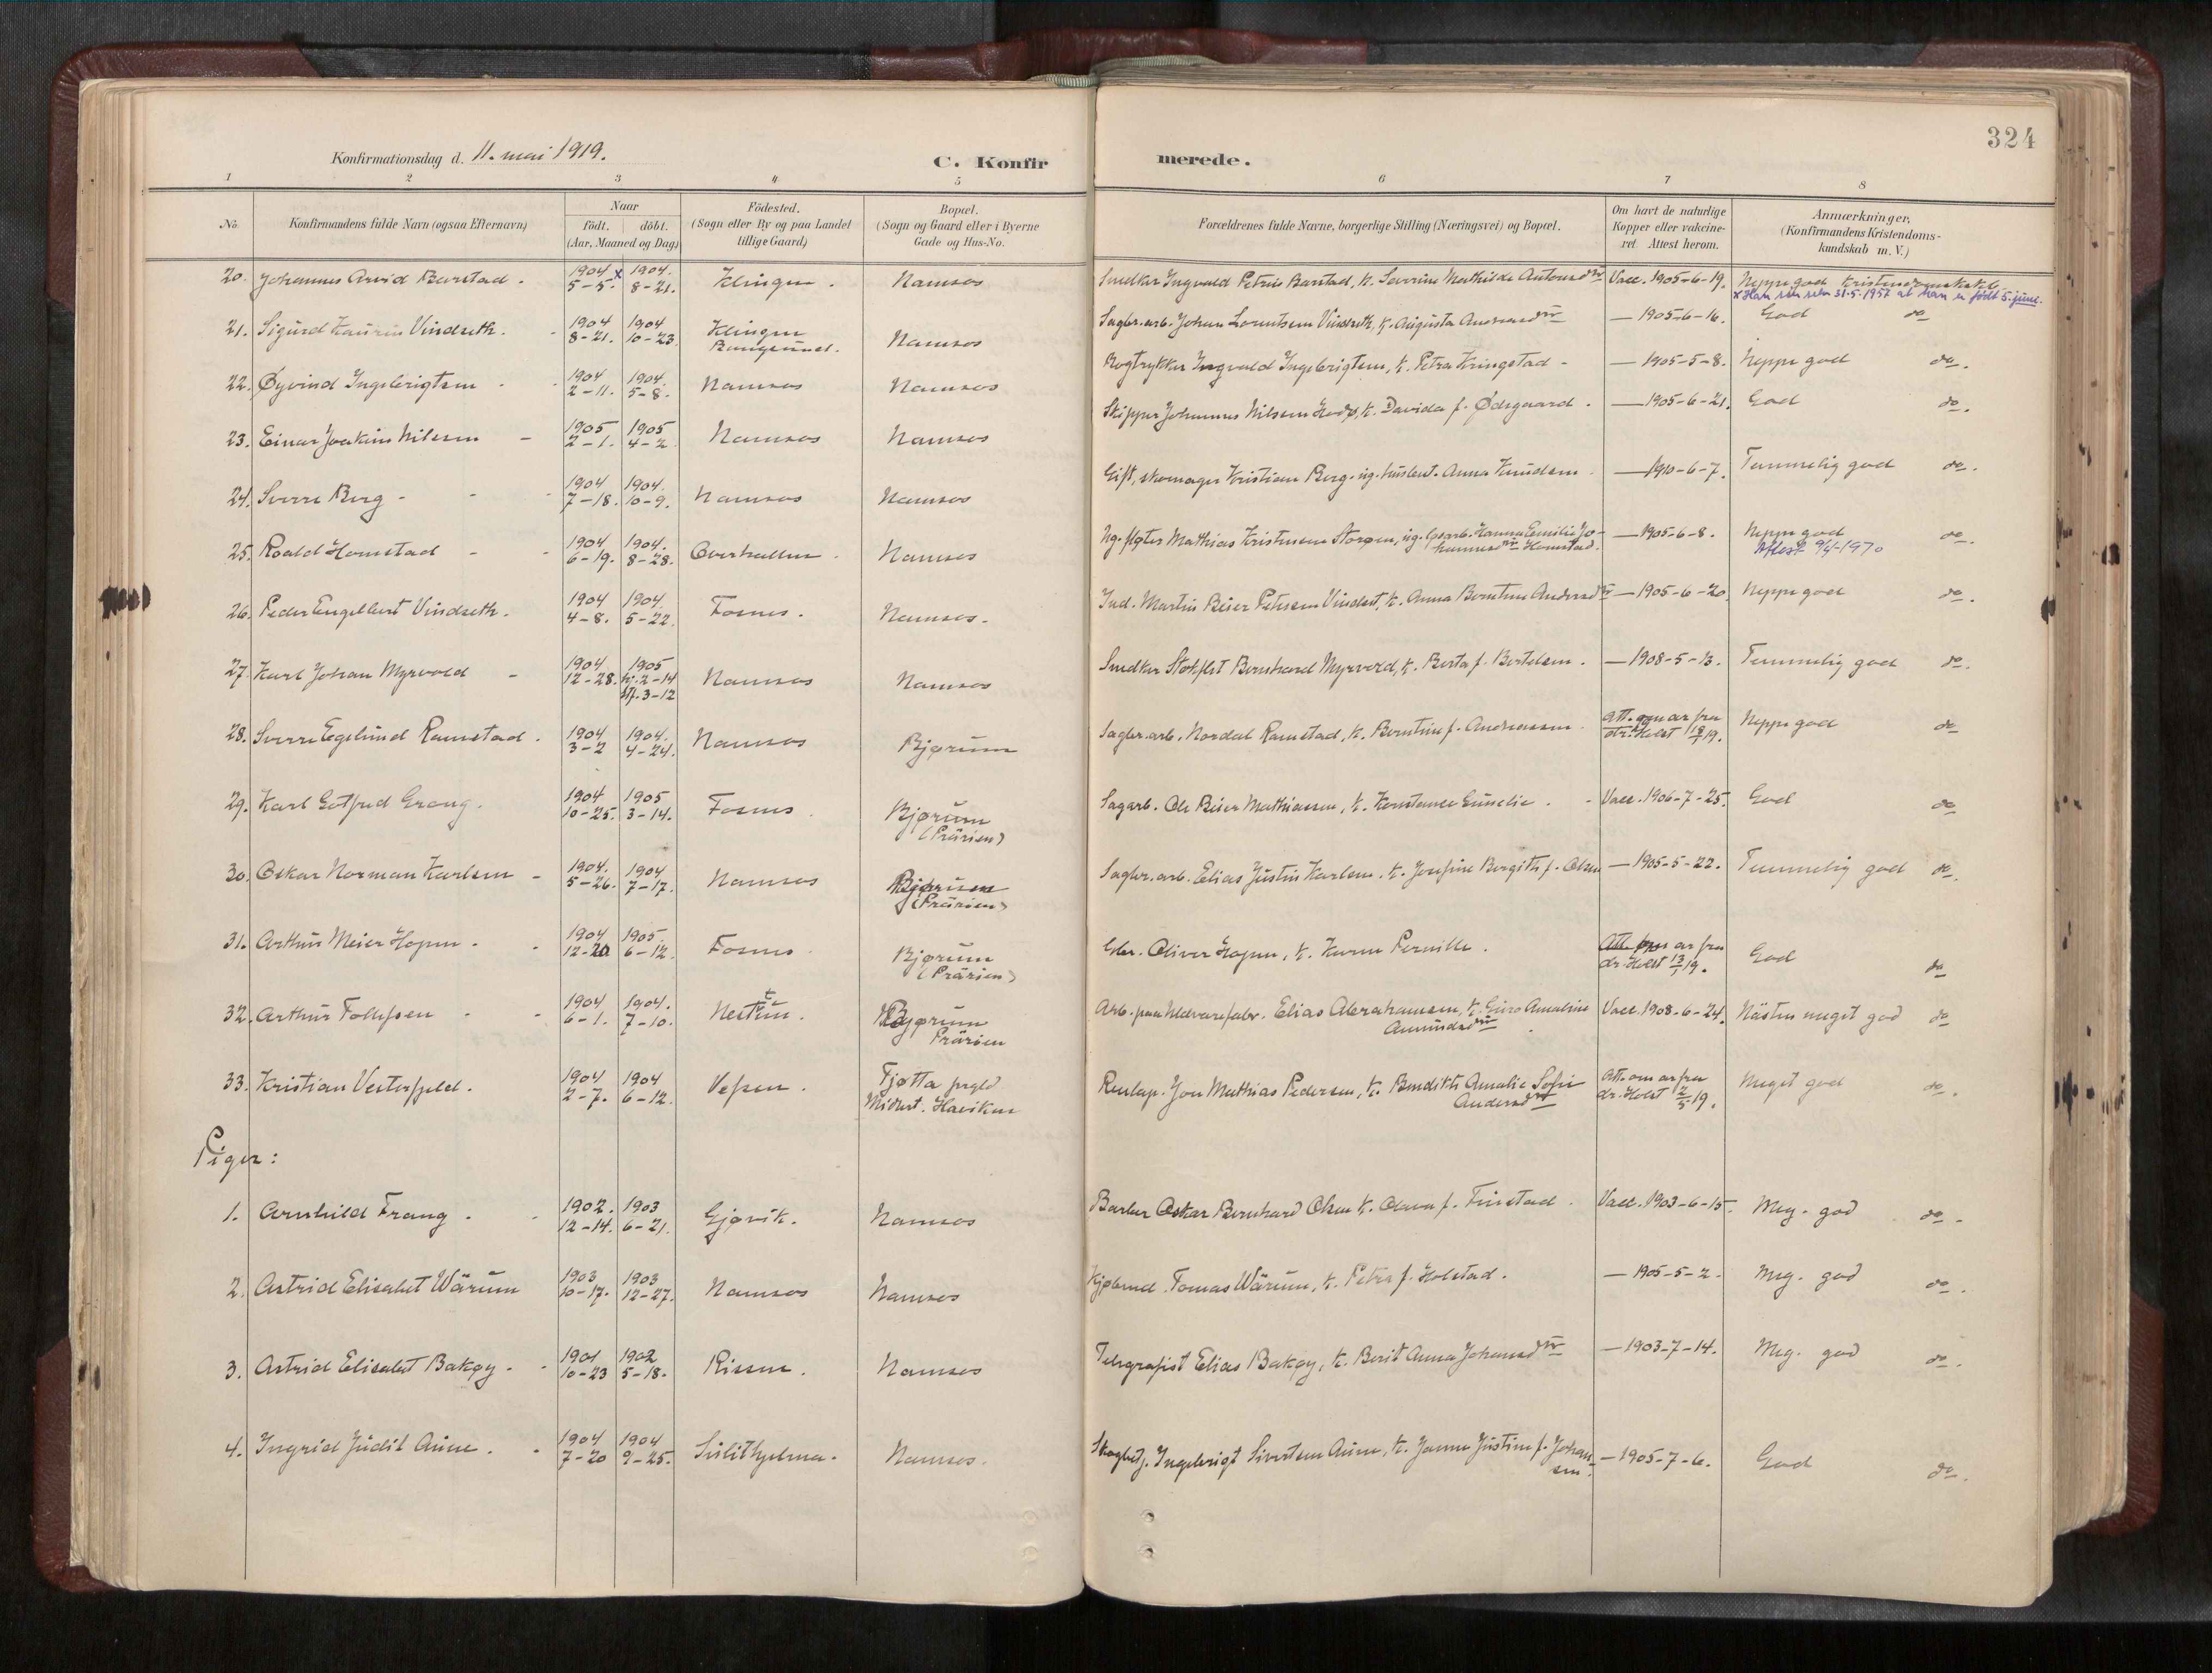 324
Konfirmationsdag d. 11. mai 1919.
C. Konfirmerede.
1 2 3 4 5 6 7 8
No. Konfirmandens fulde Navn (ogsaa Efternavn)
Naar født. døbt. (Aar, Maaned og Dag)
Födested. (Sogn eller By og paa Landet tillige Gaard)
Bopæl. (Sogn og Gaard eller i Byerne Gade og Hus-No.
Forældrenes fulde Navne, borgerlige Stilling (Næringsvei) og Bopæl.
Om havt de naturlige Kopper eller vakcineret. Attest herom.
Anmærkninger, (Konfirmandens Kristendomskundskab m. V.)
20. Johannes Arvid Barstad. 1904 5-5. x 1904. 8-21. Klingen. Namsos Snedker Ingvald Petrus Barstad, k. Severine Mathilde Antonsdtr Vacc. 1905-6-19. Neppe god Kristendomsksk.
x Han sier selv 31-5-1957 at han er født 5. juni.
21. Sigurd Vindseth. 1904 8-21. 1904 10-23. Klingen Bangsund. Namsos Sagbr.arb. Johan Lorentsen Vindseth, k. Augusta Andreasdtr — 1905-6-16. God do
22. Øyvind Ingebrigtsen 1904 2-11. 1904. 5-8. Namsos Namsos Bogtrykker Ingvald Ingebrigtsen, k. Petra Kringstad — 1905-5-8. Neppe god do.
23. Einar Joakim Nilssen 1905 2-1. 1905 4-2. Namsos Namsos Skipper Johannes Nilssen, k. Davida f. Ødegaard. — 1905-6-21. God do.
24. Sverre Berg 1904 7-18. 1904. 10-9. Namsos Namsos Gift, skomager Kristian Berg, ug. Anna Knudsen — 1910-6-7. Temmelig god do.
25. Roald Homstad 1904 6-19. 1904. 8-28. Overhallen. Namsos Ug. Mathias Kristensen, ug. Hanna Emilie Johannesdtr Homstad. — 1905-6-8. Neppe god do.
Attest 9/4-1970
26. Peder Engelbert Vindseth. 1904 4-8. 1904. 5-22. Fosnes. Namsos. Ind. Martin Beier Petersen, k. Anna Berntine Andersdtr — 1905-6-20. Neppe god do.
27. Karl Johan Myrvold 1904 12-28. 1905 hj. 2-14 st. 3-12 Namsos Namsos Snedker Bernhard Myrvold, k. Berta f. Bertelsen. — 1908-5-13. Temmelig god do.
28. Sverre Egelund Ramstad. 1904 3-2 1904. 4-24. Namsos Bjørum Sagbr.arb. Nordal Ramstad, k. Berntine f. Andreassen. Att. om ar fra dr. Holst 19. Neppe god do
29. Karl Gotfred Grong. 1904 10-25. 1905 3-14. Fosnes Bjørum (Prärien) Sagarb. Ole Beier Mathiassen, k. Konstance Emelie. Vacc. 1906-7-25. God do
30. Oskar Norman Karlsen 1904. 5-26. 1904 7-17. Namsos Bjørum (Prärien) Sagbr.arb. Elias Justin Karlsen, k. Josefine Bergith f. Olsen — 1905-5-22. Temmelig god do.
31. Arthur Meier Hopen. 1904 12-20. 1905. 6-12. Fosnes Bjørum (Prärien) Oliver Hopen, k. Karen Pernille. Att. om ar fra dr. Holst 13/ 19. God do
32. Arthur Tollefsen 1904 6-1. 1904. 7-10. Bjørum Prärien Arb. paa Uldvarefabr. Elias Abrahamsen, k. Guro Amaline Amundsdtr Vacc. 1908-6-24. Nästen meget god do
33. Kristian Vesterfjeld. 1904 2-7. 1904 6-12. Vefsen. Tjøtta prgld Midlert. Havikan Jon Mathias Pedersen, k. Bendikte Amalie Sofie Andersdtr Att. om ar fra dr. Holst 2/5 19. Meget god do.
Piger:
1. Arnhild Frang 1902. 12-14. 1903 6-21. Gjøvik. Namsos Barber Oskar Bernhard Olsen k. Olava f. Finstad. Vacc. 1903-6-15. Meg. god do.
2. Astrid Elisabet Wärum 1903 10-17. 1903 12-27. Namsos Namsos Kjøbmd. Tomas Wärum, k. Petra f. Holstad. — 1905-5-2. Meg. god do.
3. Astrid Elisabet Bakøy. 1901 10-23 1902 5-18. Rissen. Namsos Telegrafist Elias Bakøy, k. Berit Anna Johansdtr — 1903-7-14. Meg. god do.
4. Ingrid Judit Aune. 1904 7-20 1904 9-25. Sulithjelma. Namsos. Skogbetj. Ingebrigt Sivertsen Aune, k. Janna Justine f. Johansen. — 1905-7-6. God do.